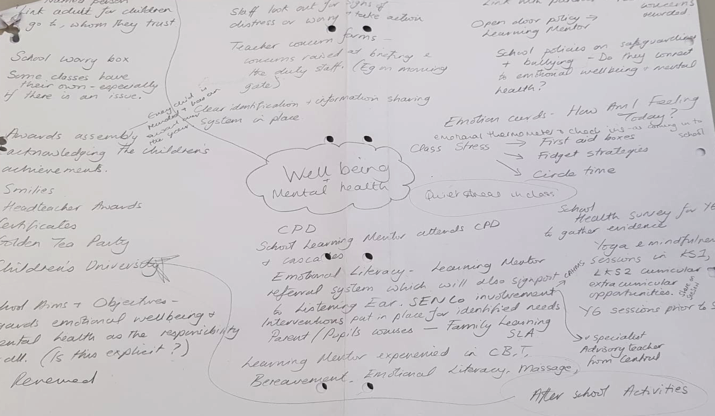 Link adult for children
go to, whom they trust
School worry box
Some classes have
their own - especially
if there is an issue.
Awards assembly
acknowledging the children's
achievements.
Smilies
Headteacher Awards
Certificates
Golden Tea Party
Children's University
School Aims + Objectives -
emotional wellbeing &
mental health as the responsibility
all. (Is this explicit?)
Reviewed
Staff look out for signs of
distress or worry + take action
Teacher concern forms -
concerns raised at briefing &
the duty staff. (Eg on morning
gate)
Clear identification + information sharing
system in place
Well being
+
Mental health
CPD
School Learning Mentor attends CPD
& cascades
Emotional Literacy - Learning Mentor
referral system which will also signpost
to Listening Ear. SENCo involvement
Interventions put in place for identified needs
Parent/Pupils courses - Family Learning
SLA
Learning Mentor experienced in C.B.T,
Bereavement, Emotional Literacy, Massage,
Open door policy →
Learning Mentor
School policies on safeguarding
+ bullying - Do they connect
to emotional wellbeing + mental
health?
Emotion cards - How Am I Feeling
Today?
Class Stress → First aid boxes
→ Fidget strategies
→ Circle time
Quiet areas in class
School
Health Survey for Y
to gather evidence
Yoga & mindfulness
sessions in KS1,
LKS2 curricular +
extra curricular
opportunities.
Y6 sessions prior to S
specialist
Advisory teacher
from Central
After school Activities